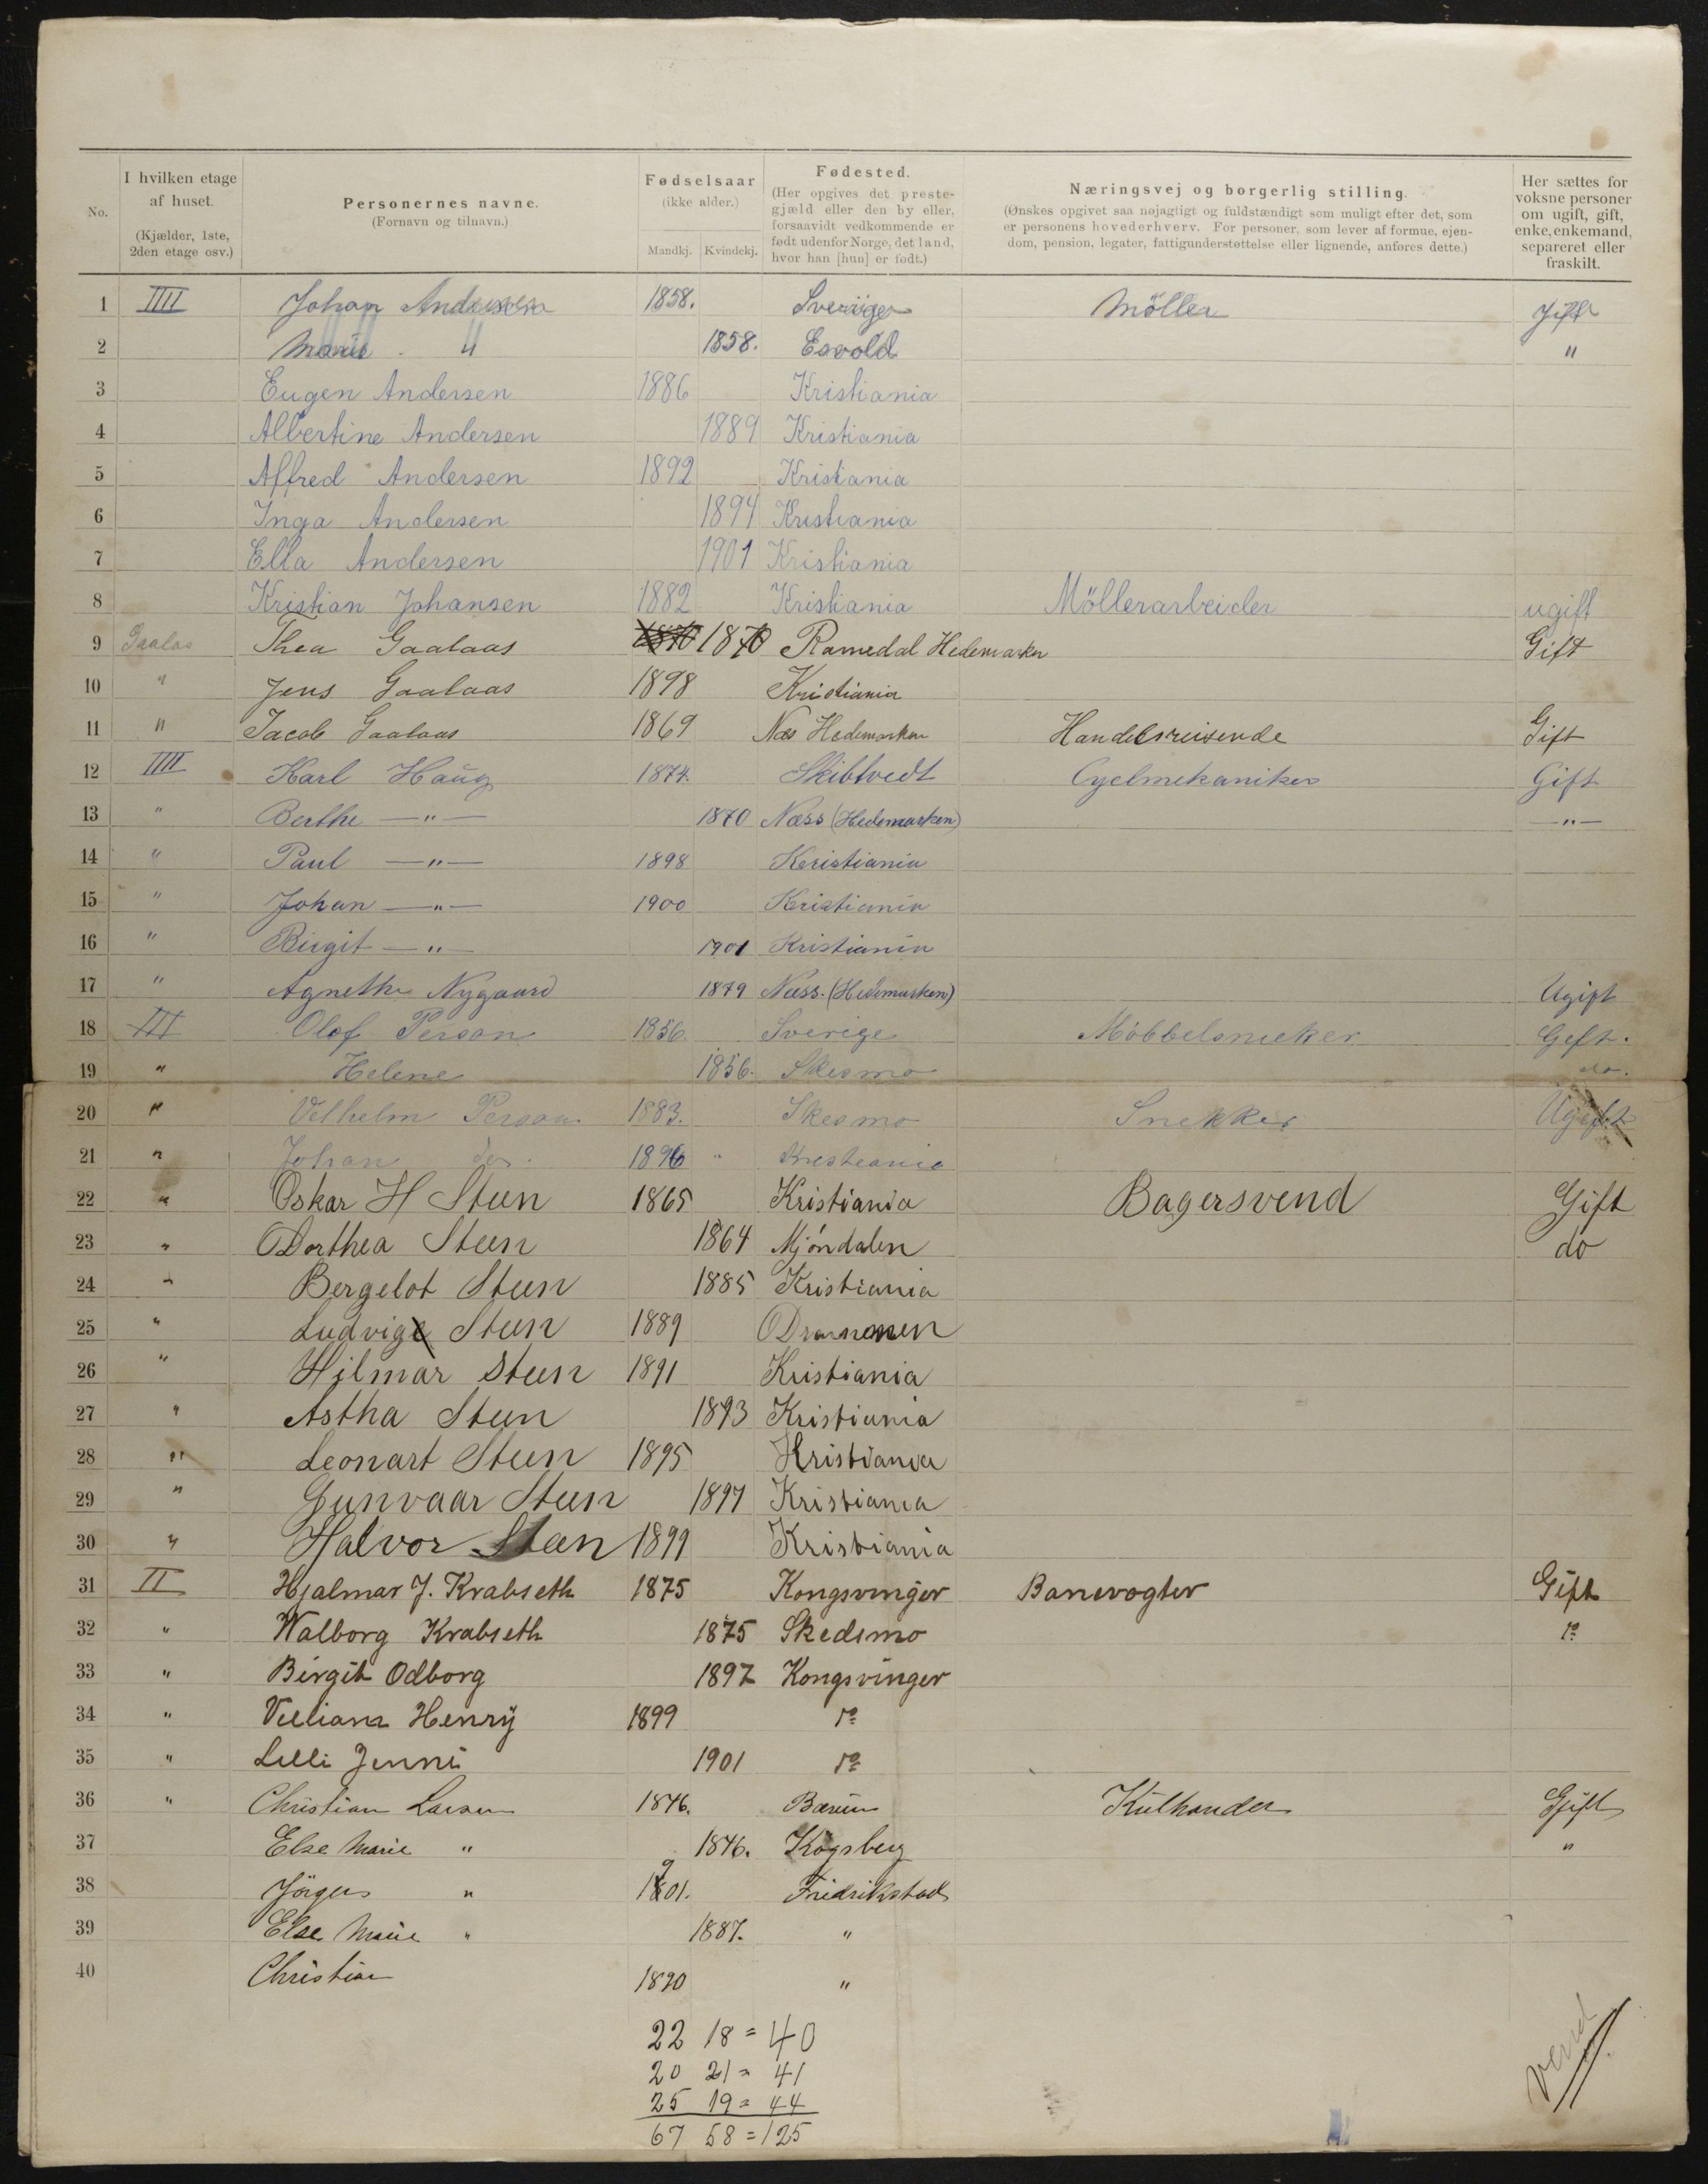 No. I hvilken etage af huset. (Kjælder, 1ste, 2den etage osv.) Personernes navne. (Fornavn og tilnavn.) Fødselsaar (ikke alder.) Mandkj. Kvindekj. Fødested. (Her opgives det prestegjæld eller den by eller, forsaavidt vedkommende er født udenfor Norge, det land, hvor han [hun] er født.) Næringsvej og borgerlig stilling. (Ønskes opgivet saa nøjagtigt og fuldstændigt som muligt efter det, som er personens hovederhverv. For personer, som lever af formue, ejendom, pension, legater, fattigunderstøttelse eller lignende, anføres dette.) Her sættes for voksne personer om ugift, gift, enke, enkemand, separeret eller fraskilt.
1 IIII Johan Andersen 1858. Sverige Möller Gift
2 Marie " 1858. "
3 Eugen Andersen 1886 Kristiania
4 Albertine Andersen 1889 Kristiania
5 Alfred Andersen 1892 Kristania
6 Inga Andersen 1894 Kristiania
7 Ella Andersen 1901 Kristiania
8 Kristian Johansen 1882 Kristiania Möllerarbeider ugift
9 Gaalas Thea Gaalaas 1870 Romedal Hedemarken Gift
10 " Jens Gaalaas 1898 Kristiania
11 " Jacob Gaalaas 1869 Næs Hedemarken Handelsreisende Gift
12 IIII Karl Haug 1874. Skibtvedt Cyclmekaniker Gift
13 " Berthe —"— 1870 Næss (Hedemarken) —"—
14 " Paul —"— 1898 Kristiania
15 " Johan —"— 1900 Kristiania
16 " Birgit —"— 1901 Kristiania
17 " Agnethe Nygaard 1879 Næss. (Hedemarken) Ugift
18 III Olof Person 1856. Sverige Möbbelsneker Geft.
19 " Helene 1856. Skesmo do.
20 " Velhelm Person 1883. Skesmo Snekker Ugift
21 " Johan do. 1896 " Kresteania
22 " Oskar H Steen 1865 Kristiania Bagersvend Gift
23 " Dorthea Steen 1864 Mjöndalen do
24 " Bergelot Steen 1885 Kristiania
25 " Ludvig Steen 1889 Drammen
26 " Hilmar Steen 1891 Kristiania
27 " Astha Steen 1893 Kristiania
28 " Leonart Steen 1895 Kristiania
29 " Gunvaar Steen 1897 Kristiania
30 " Halvor Steen 1899 Kristiania
31 II Hjalmar J. Krabseth 1875 Kongsvinger Banevogter Gift
32 " Walborg Krabseth 1875 Skedsmo do
33 " Birgit Odborg 1897 Kongsvinger
34 " Villiam Henry 1899 do
35 " Lilli Jenni 1901 do
36 " Christian Larsen 1846. Bærum Kulhandler Gift
37 Else Marie " 1846. Kogsberg "
38 Jörgen " 1901. Fridrikstad
39 Else Marie " 1887. "
40 Christian 1890 "
22 18 = 40
20 21 = 41
25 19 = 44
67 58 = 125
vend